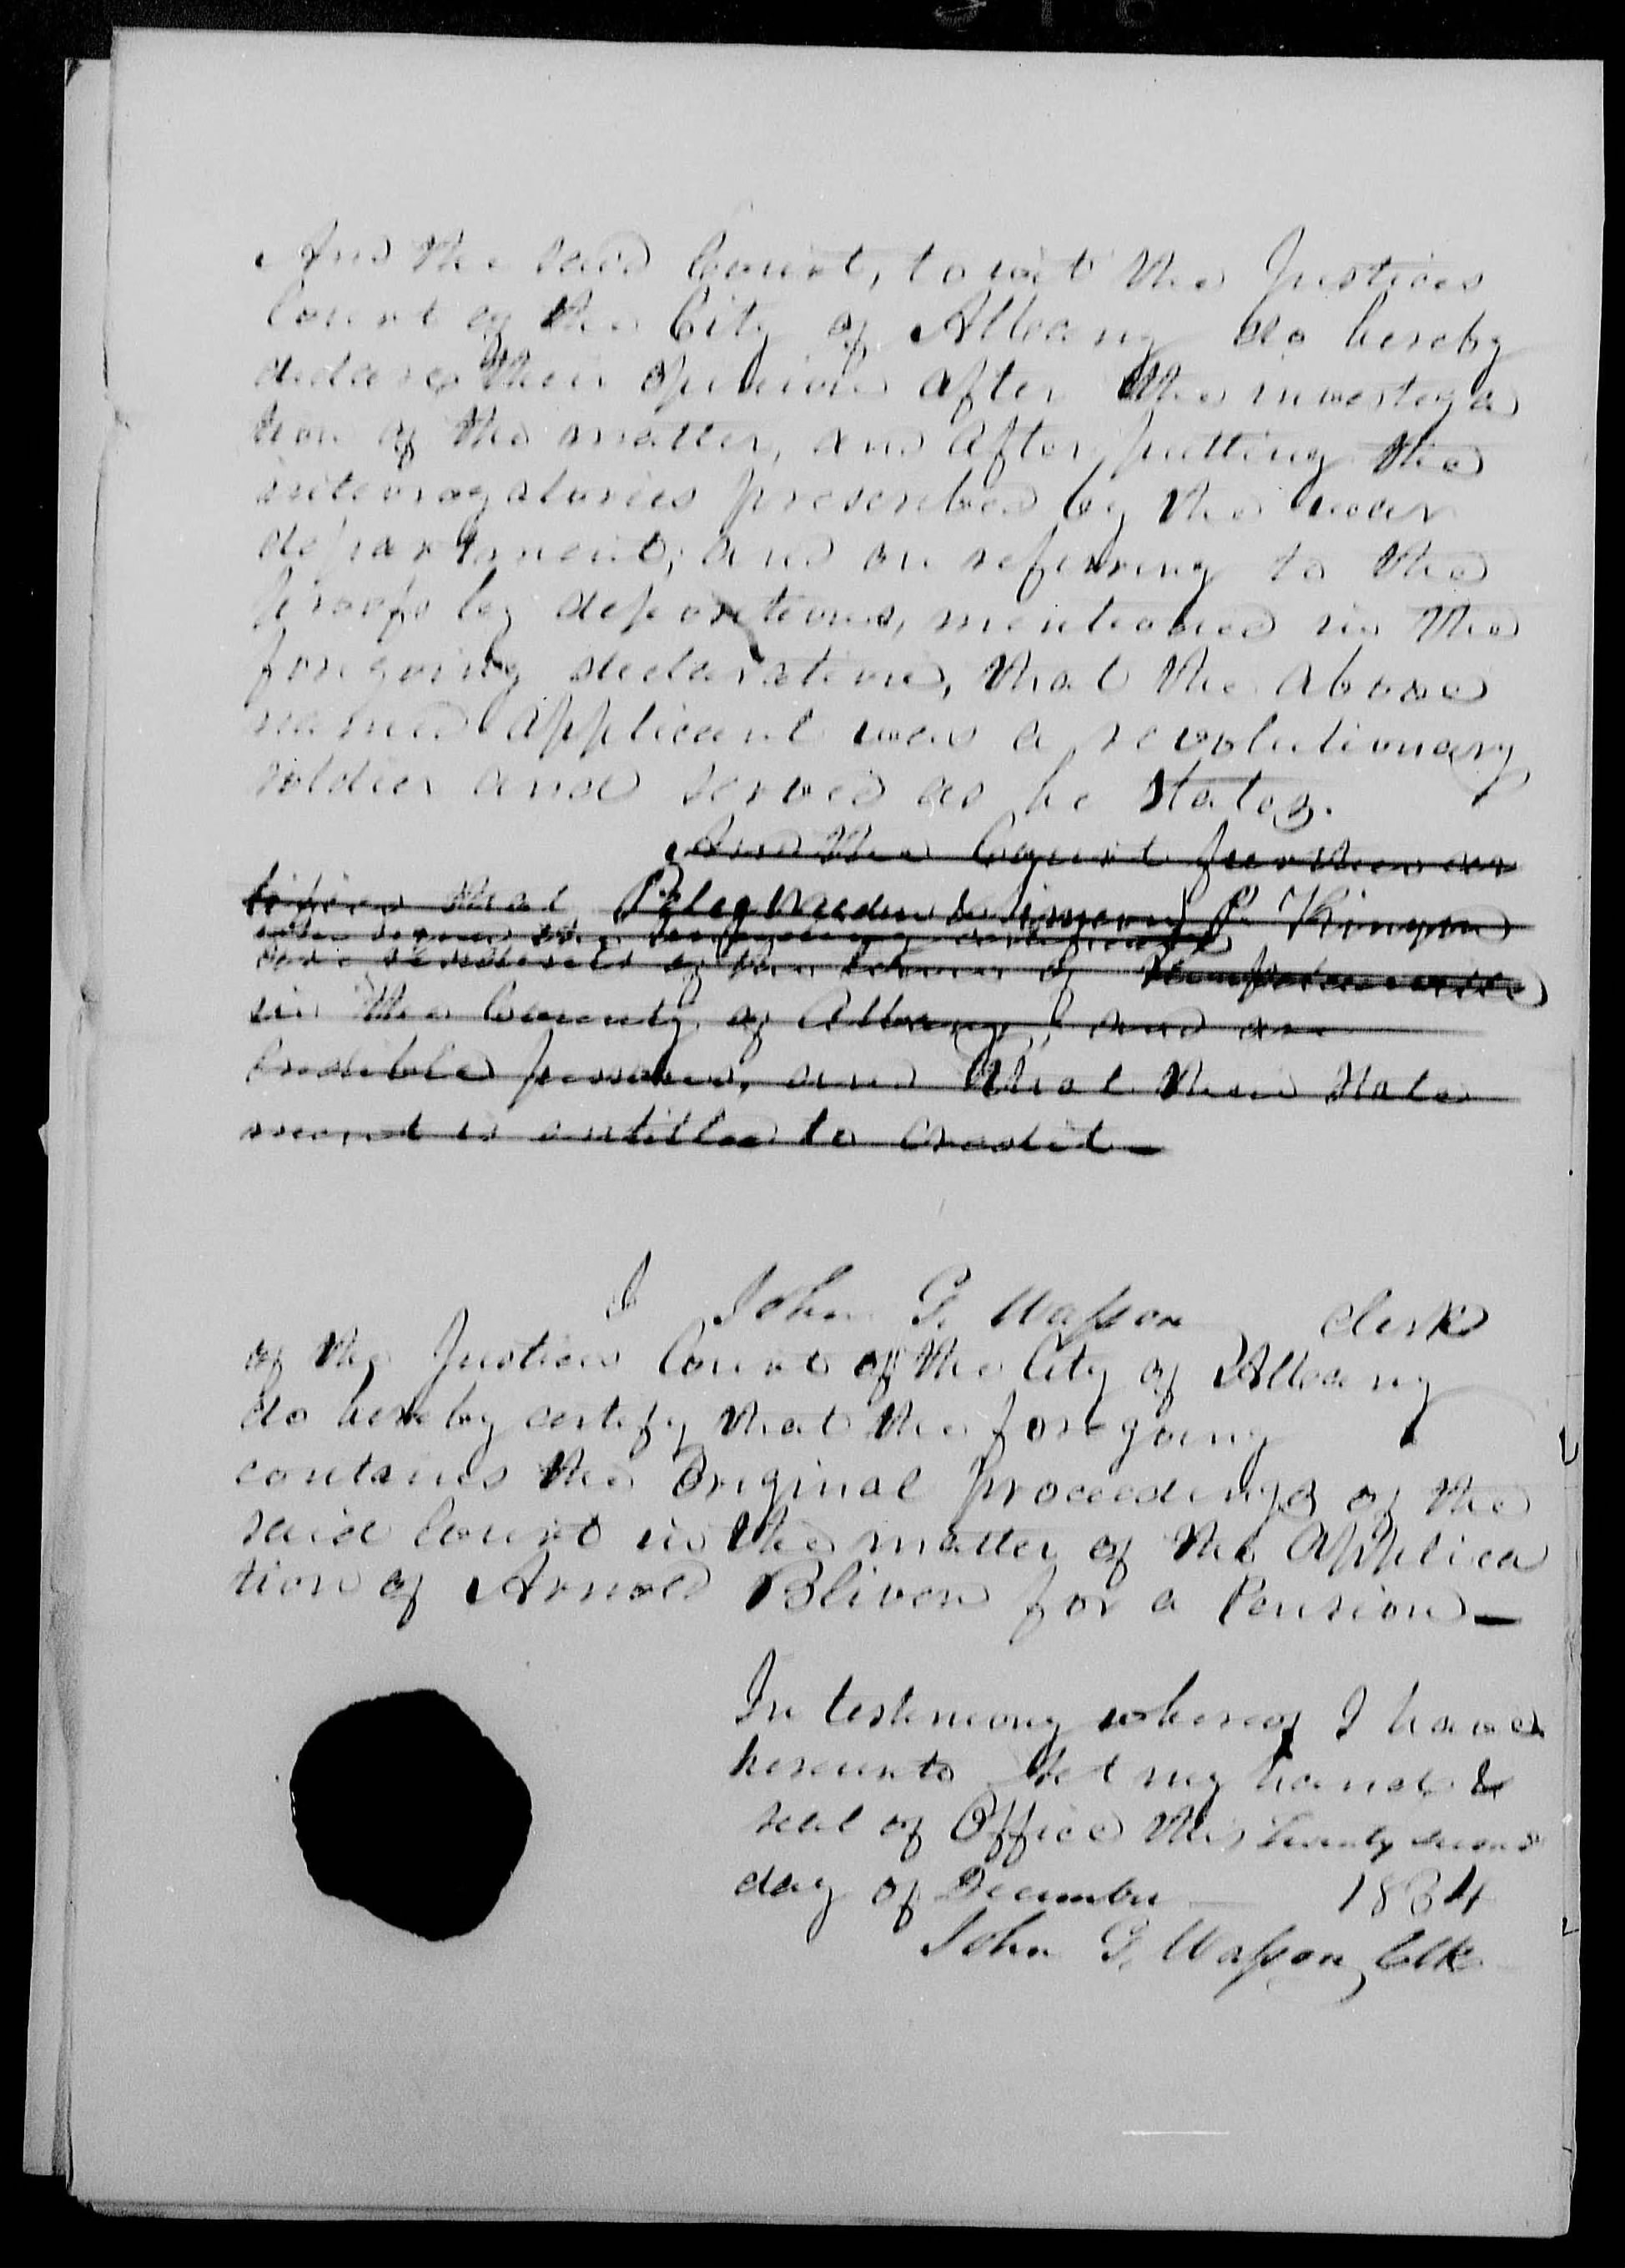 And the said Court, to wit the Justices
Court of the City of Albany do hereby
declare their opinion after the investiga
tion of the matter, and after putting the
interrogatories prescribed by the war
department, and on referring to the
proofs by depositions, mentioned in the
foregoing declaration, that the above
named applicant was a revolutionary
soldier and served as he states.
And the Court further cer
tifies that Peleg & P. Kinyon
who signed the certificate
are residents of the town of
in the County of Albany, and are
Credible persons, and that their state
ment is entitled to credit –
I John G. Wasson clerk
of the Justices Court of the City of Albany
do hereby certify that the foregoing
contains the Original proceedings of the
said Court in the matter of the Applica
tion of Arnold Bliven for a Pension –
In testimony whereof I have
hereunto set my hand &
seal of Office this Twenty second
day of December 1834
John G. Wasson, Clk